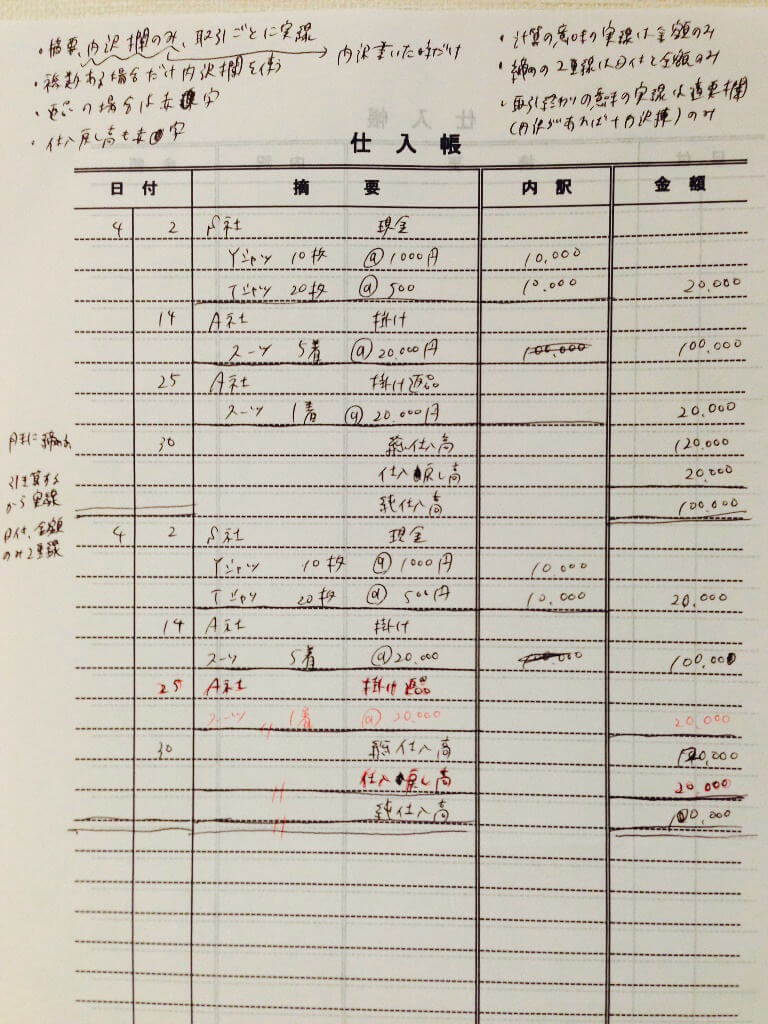 ・摘要、内沢欄のみ、取引ごとに実線
→ 内沢書いた時だけ
・複数ある場合だけ内沢欄を使う
・返品の場合は赤字
・仕入戻し高も赤字
・計算の意味の実線は金額のみ
・締めの2重線は日付と金額のみ
・取引終わりの意味の実線は摘要欄
(内沢があれば+内沢欄)のみ
仕入帳
日付 摘要 内訳 金額
4 2 S社 現金
Yシャツ 10枚 @1000円 10,000
Tシャツ 20枚 @500 10,000 20,000
14 A社 掛け
スーツ 5着 @20,000円 100,000 100,000
25 A社 掛け返品
スーツ 1着 @20,000円 20,000
月末に締める 30 総仕入高 120,000
引き算する 仕入戻し高 20,000
から実線 純仕入高 100,000
日付、金額 4 2 S社 現金
のみ2重線 Yシャツ 10枚 @1000円 10,000
Tシャツ 20枚 @500円 10,000 20,000
14 A社 掛け
スーツ 5着 @20,000 100,000
25 A社 掛け返品
スーツ 1着 @20,000 20,000
30 総仕入高 120,000
仕入戻し高 20,000
純仕入高 100,000